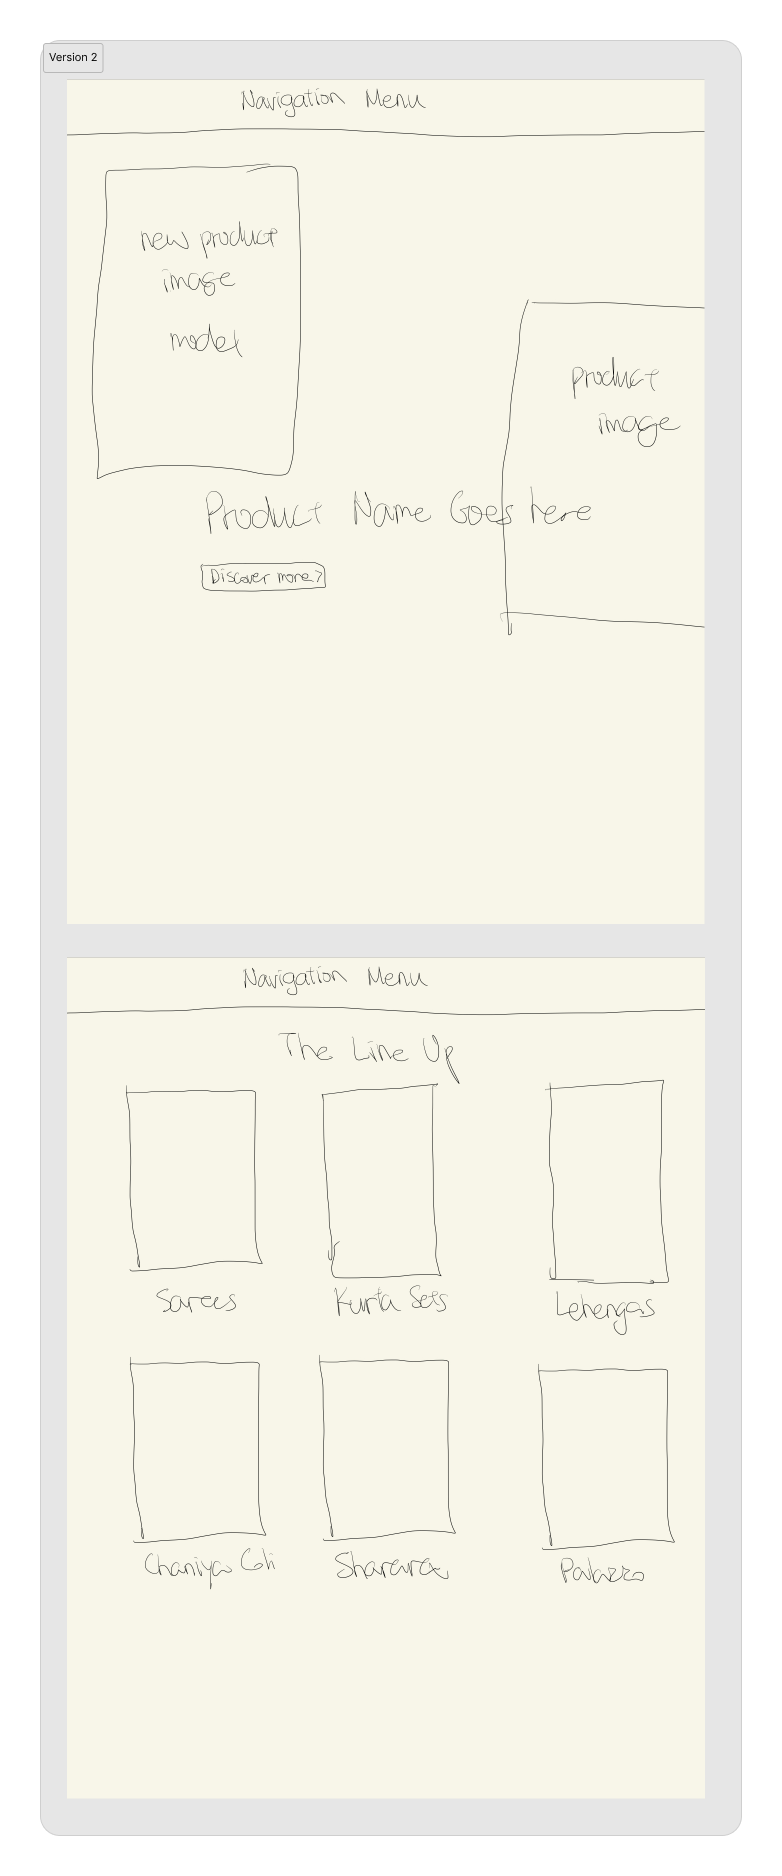 Version 2
Navigation Menu
new product
image
model
product
image
Product Name Goes here
Discover more >
Navigation Menu
The Line Up
Sarees
Kurta Sets
Lehengas
Chaniya Coli
Sharara
Palazzo